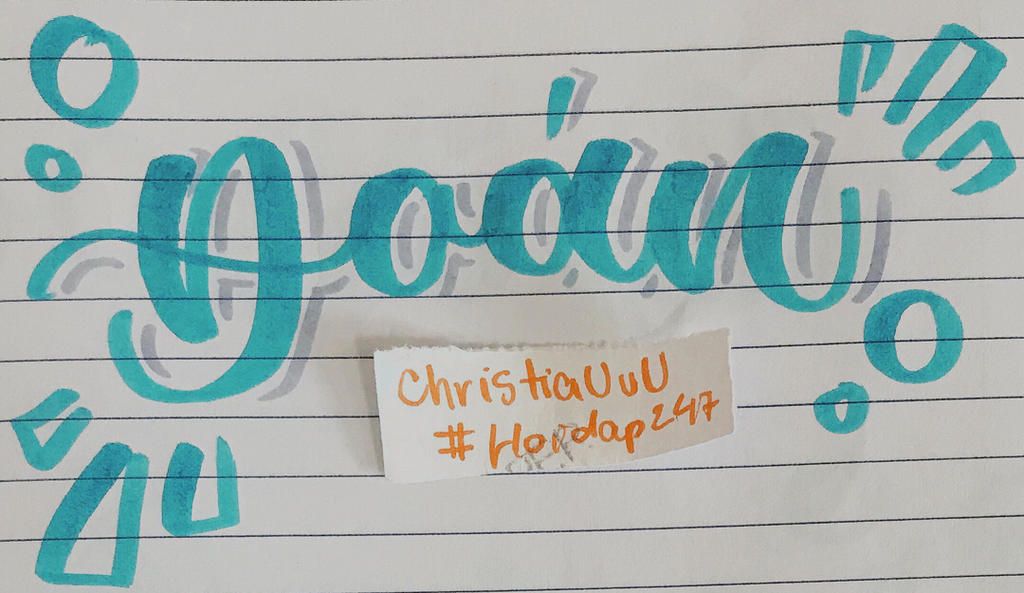 Đoán
ChristiaUuU
#Hoidap247